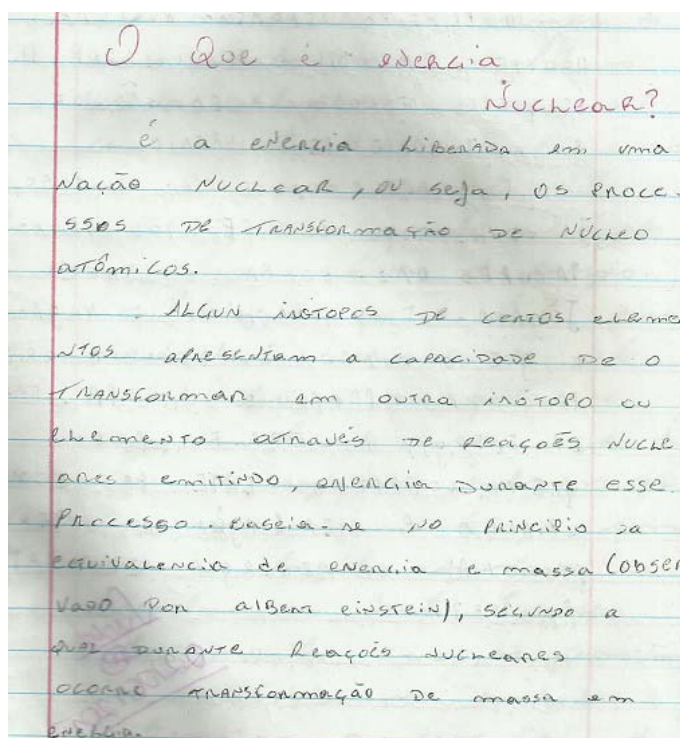 O Que é energia
Nuclear?
é a energia liberada em uma
Nação Nuclear, ou seja, os proce-
ssos de transformação de núcleo
atômicos.
Algun isótopos de certos eleme
ntos apresentam a capacidade de o
transformar em outra isótopo ou
elemento através de reações nucle
ares emitindo, energia durante esse
processo. baseia-se no principio da
equivalencia de energia e massa (obser
vado por albert einstein), segundo a
qual durante reações nucleares
ocorre transformação de massa em
energia.